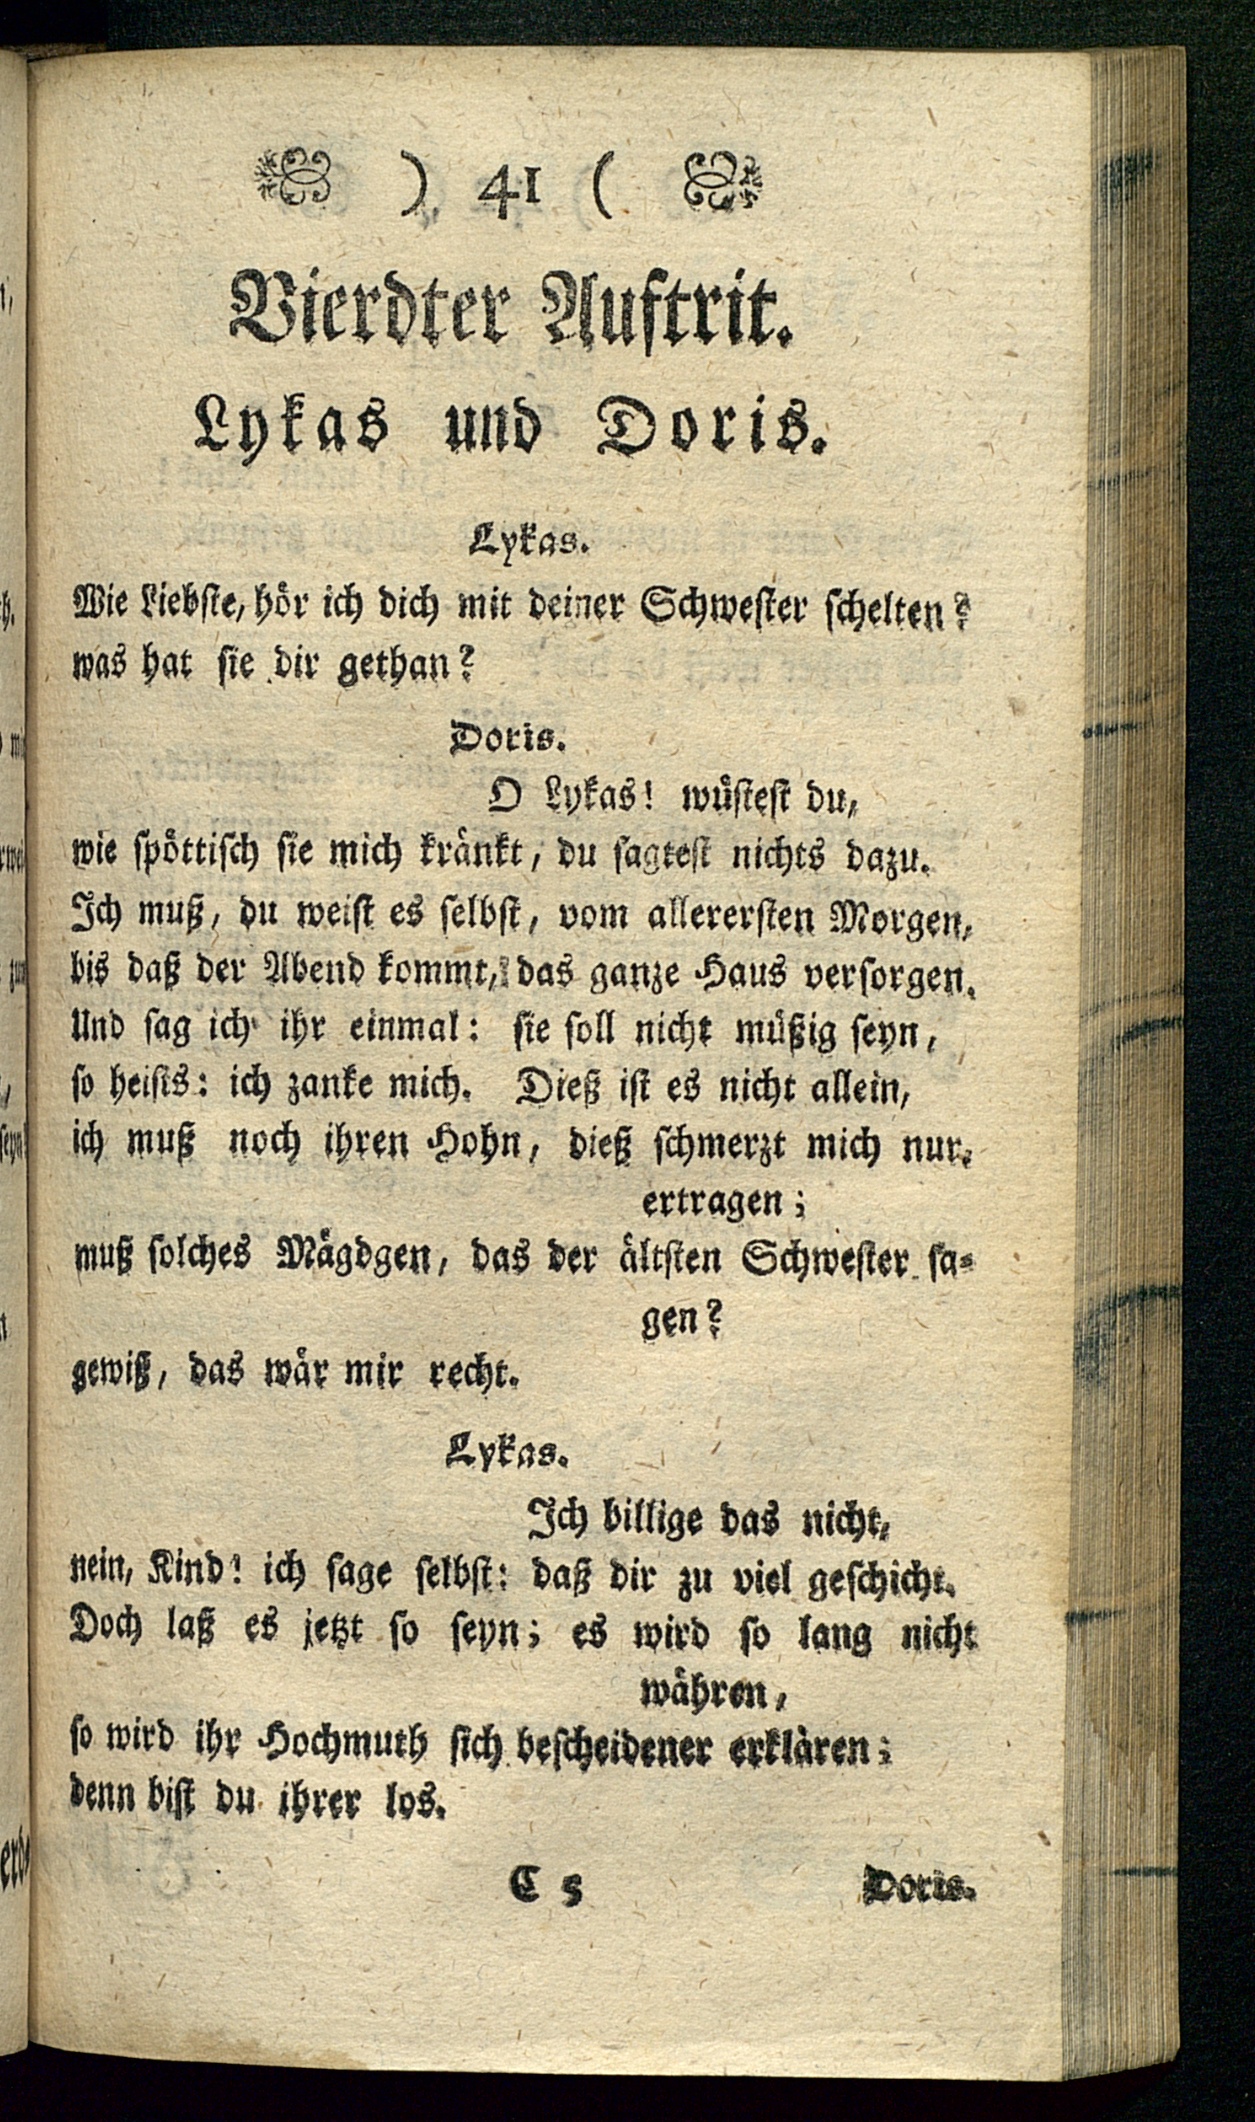 ) 41 (
Vierdter Auftrit.
Lykas und Doris.
Lykas.
Wie Liebste, hör ich dich mit deiner Schwester schelten?
was hat sie dir gethan?
Doris.
O Lykas! wüstest du,
wie spöttisch sie mich kränkt, du sagtest nichts dazu.
Ich muß, du weist es selbst, vom allerersten Morgen,
bis daß der Abend kommt, das ganze Haus versorgen.
Und sag ich ihr einmal: sie soll nicht müßig seyn,
so heists: ich zanke mich. Dieß ist es nicht allein,
ich muß noch ihren Hohn, dieß schmerzt mich nur,
ertragen;
muß solches Mägdgen, das der ältsten Schwester sa-
gen?
gewiß, das wär mir recht.
Lykas.
Ich billige das nicht,
nein, Kind! ich sage selbst: daß dir zu viel geschicht.
Doch laß es jetzt so seyn; es wird so lang nicht
währen,
so wird ihr Hochmuth sich bescheidener erklären;
denn bist du ihrer los.
C 5 Doris.